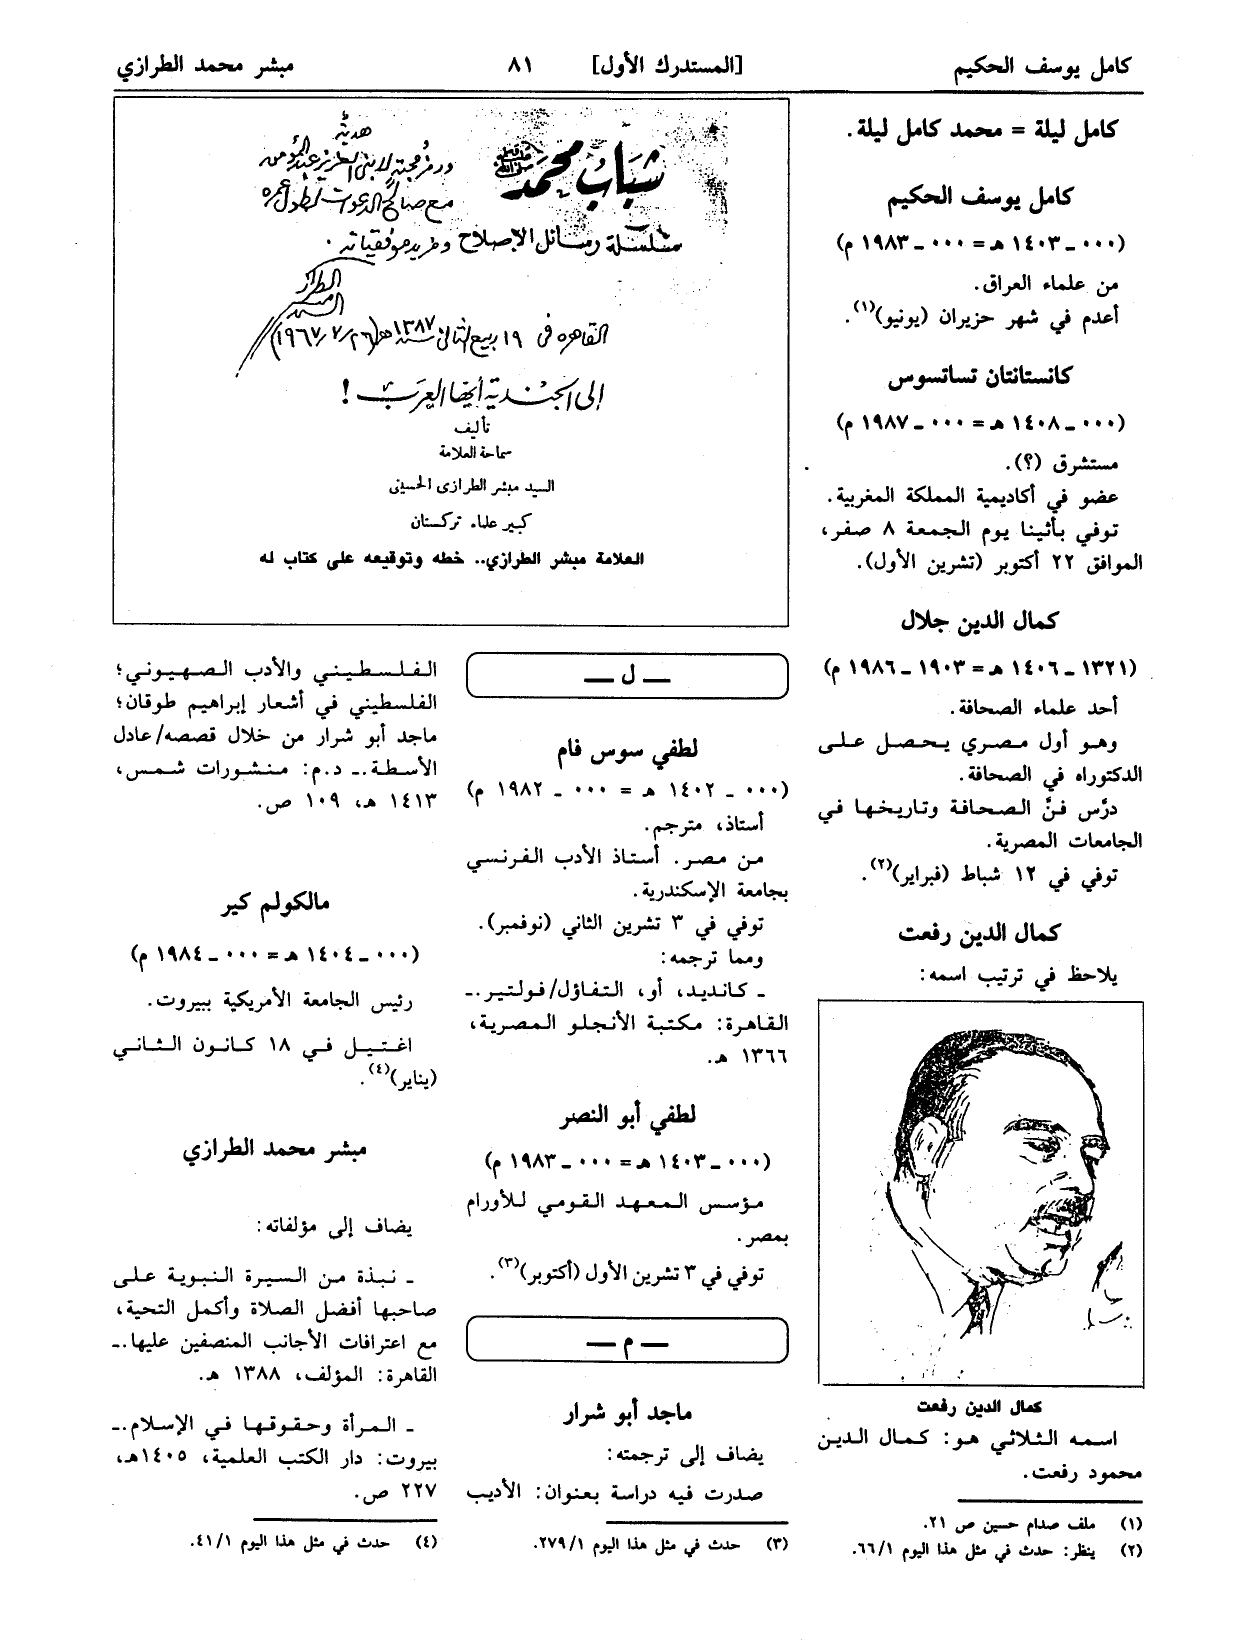 كامل يوسف الحكيم [المستدرك الأول] ٨١ مبشر محمد الطرازي
كامل ليلة = محمد كامل ليلة.
كامل يوسف الحكيم
(٠٠٠ ـ ١٤٠٣ هـ = ٠٠٠ ـ ١٩٨٣ م)
من علماء العراق.
أعدم في شهر حزيران (يونيو)(١).
كانستانتان تساتسوس
(٠٠٠ ـ ١٤٠٨ هـ = ٠٠٠ ـ ١٩٨٧ م)
مستشرق (؟).
عضو في أكاديمية المملكة المغربية.
توفي بأثينا يوم الجمعة ٨ صفر،
الموافق ٢٢ أكتوبر (تشرين الأول).
كمال الدين جلال
(١٣٢١ ـ ١٤٠٦ هـ = ١٩٠٣ ـ ١٩٨٦ م)
أحد علماء الصحافة.
وهو أول مصري يحصل على
الدكتوراه في الصحافة.
درَّس فنَّ الصحافة وتاريخها في
الجامعات المصرية.
توفي في ١٢ شباط (فبراير)(٢).
كمال الدين رفعت
يلاحظ في ترتيب اسمه:
كمال الدين رفعت
اسمه الثلاثي هو: كمال الدين
محمود رفعت.
(١) ملف صدام حسين ص ٢١.
(٢) ينظر: حدث في مثل هذا اليوم ٦٦/١.
هدية
شباب محمد
ورمز محبة لابني العزيز عبد المؤمن
مع صالح الدعوات لطول عمره
سلسلة رسائل الإصلاح ومزيد موفقياته.
القاهرة في ١٩ ربيع الثاني سنة ١٣٨٧هـ (٢٦/٧/١٩٦٧)
إلى الجندية أيها العرب !
تأليف
سماحة العلامة
السيد مبشر الطرازى الحسينى
كبير علماء تركستان
العلامة مبشر الطرازي.. خطه وتوقيعه على كتاب له
ـ ل ـ
لطفي سوس فام
(٠٠٠ ـ ١٤٠٢ هـ = ٠٠٠ ـ ١٩٨٢ م)
أستاذ، مترجم.
من مصر. أستاذ الأدب الفرنسي
بجامعة الإسكندرية.
توفي في ٣ تشرين الثاني (نوفمبر).
ومما ترجمه:
ـ كانديد، أو، التفاؤل/فولتير.ـ
القاهرة: مكتبة الأنجلو المصرية،
١٣٦٦ هـ.
لطفي أبو النصر
(٠٠٠ ـ ١٤٠٣ هـ = ٠٠٠ ـ ١٩٨٣ م)
مؤسس المعهد القومي للأورام
بمصر.
توفي في ٣ تشرين الأول (أكتوبر)(٣).
ـ م ـ
ماجد أبو شرار
يضاف إلى ترجمته:
صدرت فيه دراسة بعنوان: الأديب
(٣) حدث في مثل هذا اليوم ٢٧٩/١.
الفلسطيني والأدب الصهيوني؛
الفلسطيني في أشعار إبراهيم طوقان؛
ماجد أبو شرار من خلال قصصه/عادل
الأسطة.ـ د.م: منشورات شمس،
١٤١٣ هـ، ١٠٩ ص.
مالكولم كير
(٠٠٠ ـ ١٤٠٤ هـ = ٠٠٠ ـ ١٩٨٤ م)
رئيس الجامعة الأمريكية ببيروت.
اغتيل في ١٨ كانون الثاني
(يناير)(٤).
مبشر محمد الطرازي
يضاف إلى مؤلفاته:
ـ نبذة من السيرة النبوية على
صاحبها أفضل الصلاة وأكمل التحية،
مع اعترافات الأجانب المنصفين عليها.ـ
القاهرة: المؤلف، ١٣٨٨ هـ.
ـ المرأة وحقوقها في الإسلام.ـ
بيروت: دار الكتب العلمية، ١٤٠٥هـ،
٢٢٧ ص.
(٤) حدث في مثل هذا اليوم ٤١/١.